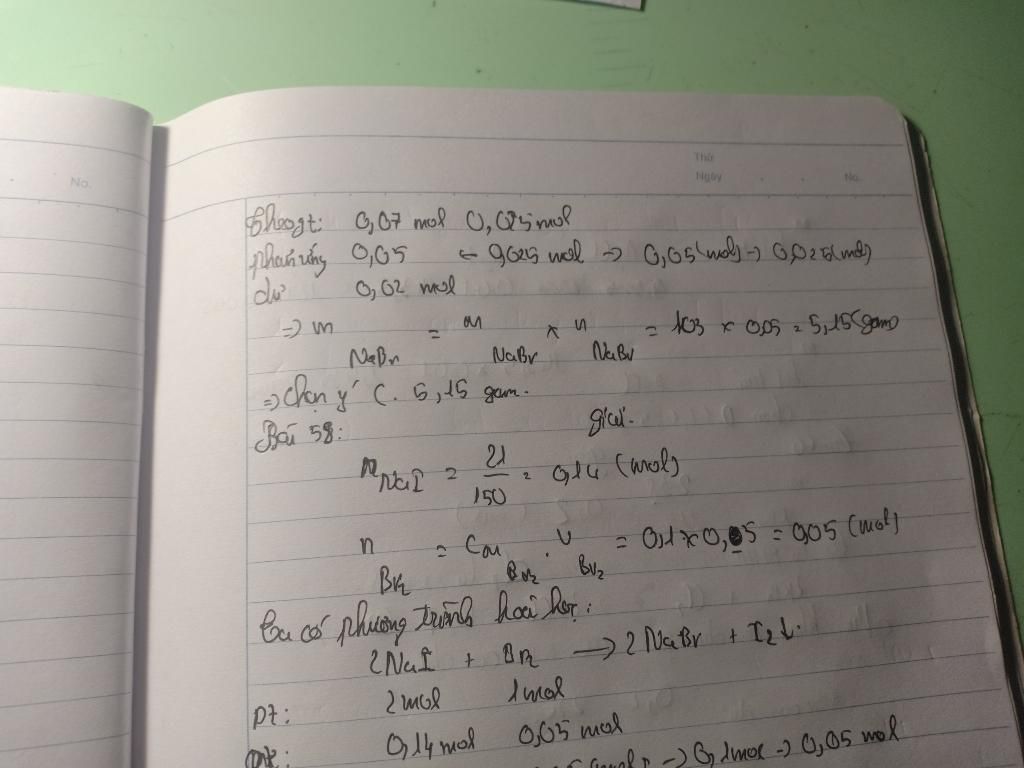 No.
Thứ
Ngày No.
theo gt: 0,07 mol 0,025 mol
phản ứng 0,05 ← 0,025 mol → 0,05 (mol) → 0,025 (mol)
dư 0,02 mol
=> m NaBr = M NaBr × n NaBr = 103 × 0,05 = 5,15 (gam)
=> Chọn ý C. 5,15 gam.
Bài 58: giải.
n NaI = 21/150 = 0,14 (mol)
n Br2 = CM Br2 . V Br2 = 0,1 × 0,5 = 0,05 (mol)
Ta có phương trình hoá học:
2NaI + Br2 → 2NaBr + I2↓.
pt: 2mol 1mol
0,14 mol 0,05 mol
→ 0,1mol → 0,05 mol